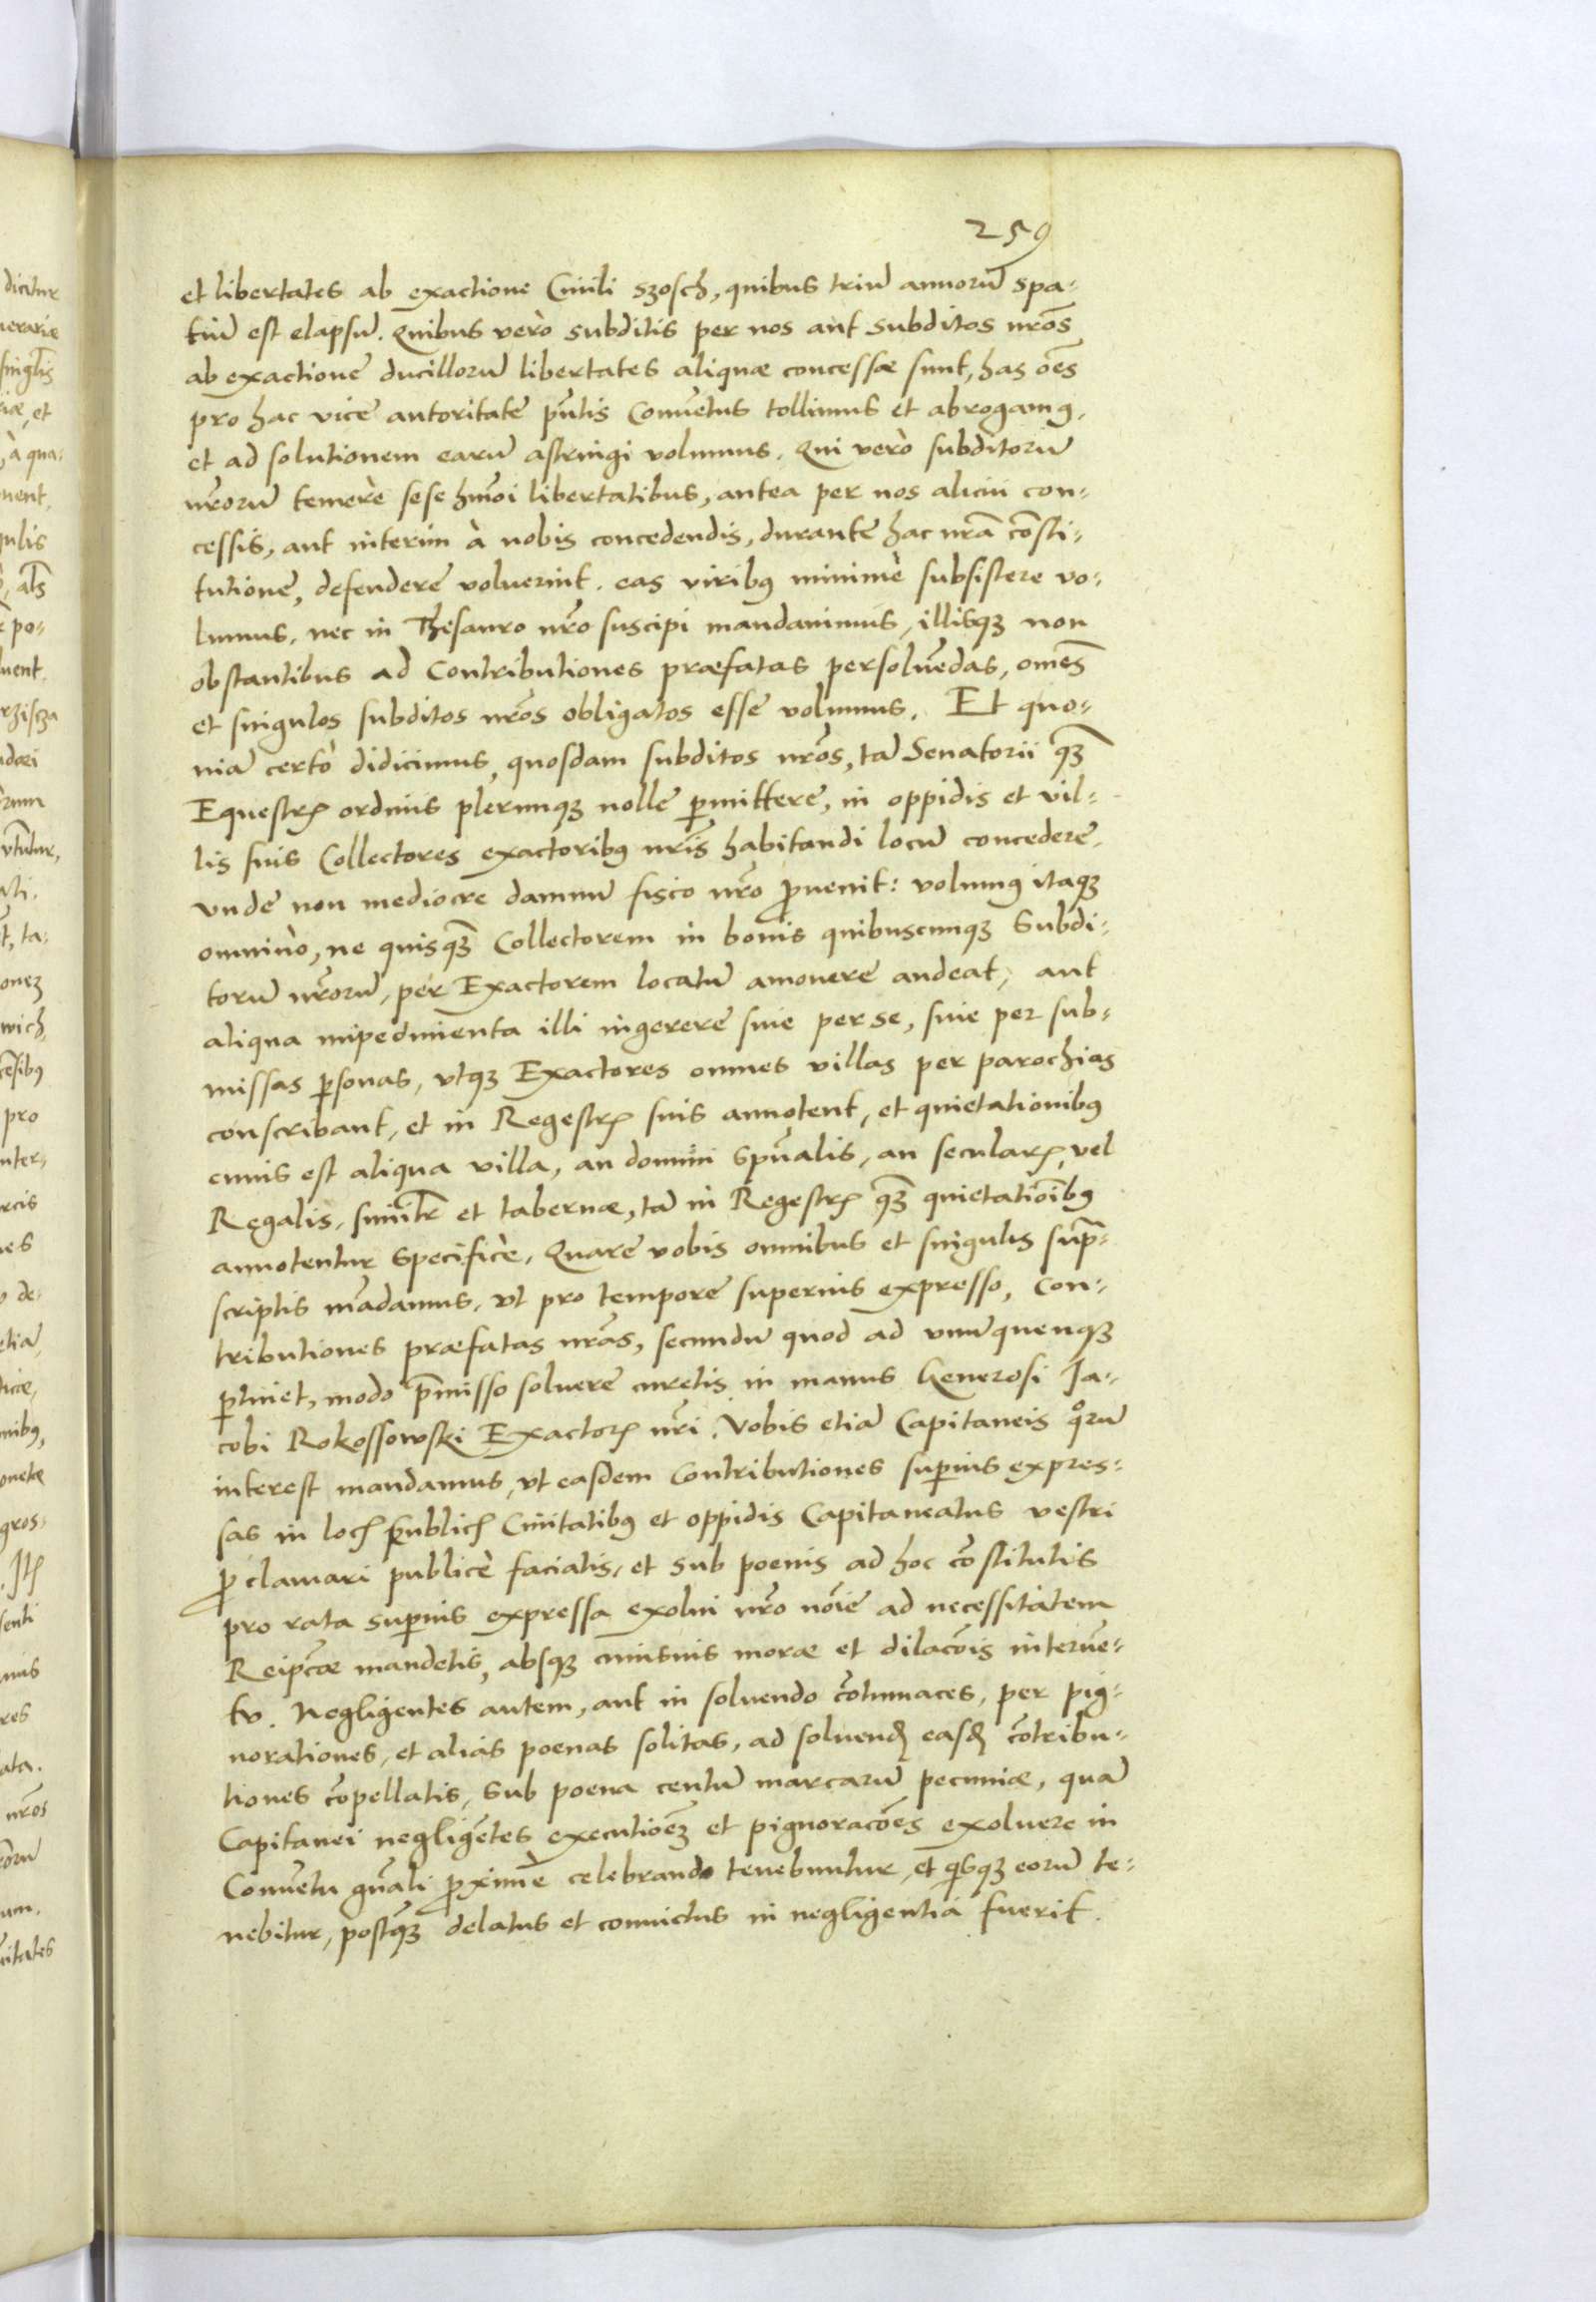 259
et libertates ab exactione Ciuili szosch, quibus triũ annorũ spa-
tiũ est elapsũ. Quibus verò subditis per nos aut subditos nrõs
ab exactione ducillorũ libertates aliquæ concessæ sunt, has oẽs
pro hac vice autoritate pñtis Conuẽtus tollimus et abrogamꝰ,
et ad solutionem earũ astringi volumus. Qui verò subditorũ
nrõrũ temerè sese hmõi libertatibus, antea per nos alicui con-
cessis, aut interim à nobis concedendis, durante hac nrã cõsti-
tutione, defendere voluerint. eas viribꝰ minimè subsistere vo-
lumus, nec in Thesauro nrõ suscipi mandauimus, illisqꝫ non
obstantibus ad Contributiones præfatas persoluẽdas, omẽs
et singulos subditos nrõs obligatos esse volumus. Et quo-
niã certò didicimus, quosdam subditos nrõs, tã Senatorii qꝫ̃
Equestrꝭ ordinis plerunqꝫ nolle ꝑmittere, in oppidis et vil-
lis suis Collectores exactoribꝰ nrĩs habitandi locũ concedere.
vnde non mediocre damnũ fisco nrõ ꝓuenit: volumꝰ itaqꝫ
omnino, ne quisqꝫ̃ Collectorem in bonis quibuscunqꝫ Subdi-
torũ nrõrũ, per Exactorem locatũ amouere audeat, aut
aliqua impedimenta illi ingerere siue per se, siue per sub-
missas ꝑsonas, vtqꝫ Exactores omnes villas per parochias
conscribant, et in Regestrꝭ suis annotent, et quietationibꝰ
cuius est aliqua villa, an domini spũalis, an secularꝭ, vel
Regalis. similr̃ et tabernæ, tã in Regestrꝭ qꝫ̃ quietatiõibꝰ
annotentur specificè. Quare vobis omnibus et singulis supã-
scriptis mãdamus, vt pro tempore superius expresso, con-
tributiones præfatas nrãs, secundũ quod ad vnũquenqꝫ
ꝑtinet, modo p̃misso soluere curetis in manus Generosi Ja-
cobi Rokossowski Exactorꝭ nrĩ. Vobis etiã Capitaneis qͦrũ
interest mandamus, vt easdem contributiones suꝑius expres-
sas in locꝭ publicꝭ Ciuitatibꝰ et oppidis Capitaneatus vestri
ꝓclamari publicè faciatis, et sub poenis ad hoc cõstitutis
pro rata suꝑius expressa exolui nrõ noĩe ad necessitatem
Reipcæ̃ mandetis, absqꝫ cuiusuis moræ et dilacõis interuẽ-
tv. Negligentes autem, aut in soluendo cõtumaces, per pig-
norationes, et alias poenas solitas, ad soluendꝭ easdꝭ cõtribu-
tiones cõpellatis, sub poena centũ marcarũ pecuniæ, quã
Capitanei negligẽtes executiõeꝫ et pignoracõẽs exoluere in
Conuẽtu gñali ꝓximè celebrando tenebuntur, et qͥsqꝫ eorũ te-
nebitur, postqꝫ̃ delatus et conuictus in negligentia fuerit.